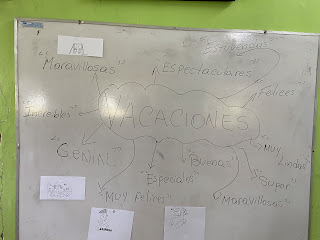 "Estupendas"
"Maravillosas"
"Espectaculares"
"Felices"
"Increíbles"
VACACIONES
"GENIAL"
"Buenas"
"Muy Lindas"
"Especiales"
"Super"
"Muy Felices"
"Maravillosas"